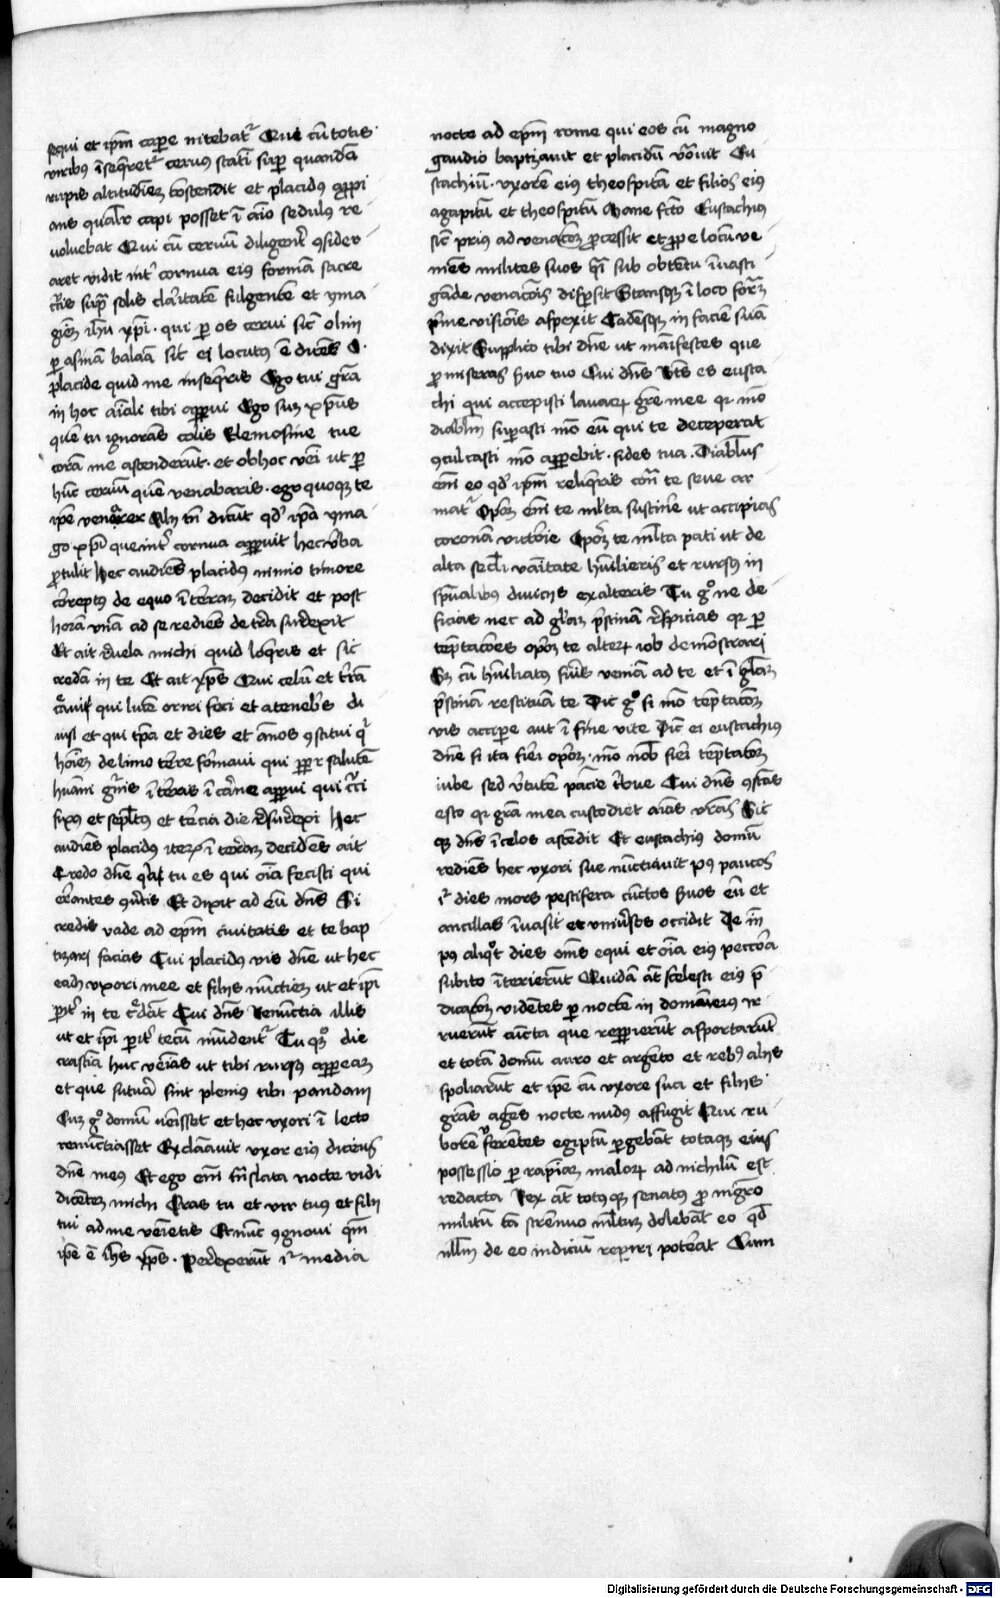 sequi et ip̄m cape nitebat᷑ Qui cū totis
viribus īseq̄ret᷑ cervus statī sup quandā
rupis altitudiēm cōscendit et placidus appi
ans qualr̄ capi posset ī aīo sedulus re
voluebat Qui cū cervū diligent᷑ ꝯsider
aret vidit int᷑ cornua eius formā sacre
crucis sup̄ solis claritatē fulgentē et yma
ginē ih̄u xp̄i · qui ꝑ os cervi sic̄ olim
ꝑ asinā balaā sic̄ ei locutus ē dicēs O ·
placide quid me inseq̄ris Ego tui gr̄a
in hoc aīali tibi apparui Ego suꝫ xp̄us
quē tu ignorās colis Elemosine tue
corā me ascenderūt · et ob hoc vēi ut ꝑ
hūc cervū quē venabaris · ego quoqꝫ te
ip̄e venarer Alij tn̄ dicūt qd̓ ip̄a yma
go xp̄i que int᷑ cornua apparuit hec v̓ba
ꝓtulit Hec audiēs placidus nimio timore
correptus de equo ī terraꝫ decidit et post
horā unā ad se rediēs de tr̄a surrexit
Et ait revela michi quid loq̄ris et sic̄
credā in te Et ait xp̄us Ego celū et tr̄ā
creavi qui lucē oriri feci et a teneb̓s di
visi et qui tp̄a et dies et annos ꝯstitui q̓
hoīem de limo terre formavi qui ꝓpt̓ salutē
humani gn̓is ī terris ī carne apparui qui cruci
fixus et sepultus et tercia die resurrexi Hec
audiēs placidus iterꝫ ī terraꝫ decidēs ait
Credo dn̄e quia tu es qui oīa fecisti qui
errantes ꝯvertis Et dixit ad eū dn̄s Si
credis vade ad ep̄m civitatis et te bap
tizari facias Cui placidus vis dn̄e ut hec
eadē uxori mee et filijs nūctiem ut et ip̄i
parit̓ in te credāt Cui dn̄s Renūctia illis
ut et ip̄i parit̓ tecū mūdent᷑ Tu quoqꝫ die
crastīa huc veīas ut tibi rursus appareaꝫ
et que futura sint plenius tibi pandam
Cuꝫ g̊ domū veīsset et hec uxori ī lecto
renūctiasset Exclamavit uxor eius dicens
dn̄e meus Et ego eī trāslata nocte vidi
dicentem michi Cras tu et vir tuus et filij
tui ad me venietis Et nūc ꝯgnovi qm̄
ip̄e ē ih̄s xp̄s · Perrexerūt i᷑ media
nocte ad ep̄m rome qui eos cū magno
gaudio baptizavit et placidū vocavit Eu
stachiū · uxorē eius theospitā et filios eius
agapitū et theospitū Mane fcō Eustachius
sic̄ prius ad venacōꝫ ꝓcessit et ꝓpe locū ve
niēs milites suos q̄i sub obtētu īvesti
gāde venacōis dispersit Stansqꝫ ī loco formā
p̓me visionis aspexit Cadensqꝫ in faciē suā
dixit Supplico tibi dn̄e ut māifestes que
ꝓmiseras servo tuo Cui dn̄s Btūs es eusta
chi qui accepisti lavacrꝫ gr̄e mee q̓ mō
diabolum supasti mō eū qui te deceperat
ꝯculcasti mō apparebit · fides tua · Diabolus
em̄ eo qd̓ ip̄m reliq̄ris contra te seve ar
mat᷑ Oportꝫ em̄ te m̄lta sustinere ut accipias
coronā victorie Oportꝫ te m̄lta pati ut de
alta sec̄li vanitate hūilieris et rursus in
sp̄ualibus divicijs exalteris Tu g̊ ne de
ficias nec ad gl̄iaꝫ pristinā respicias q̓ ꝑ
teptacōes oportꝫ te alterꝫ iob demōstrari
Sꝫ cū hūiliatus fueris veniā ad te et ī gl̄iaꝫ
pristinā restituā te Dic g̊ si mō teptacōꝫ
vis accipe aut ī fine vite Dic̄ ei eustachius
dn̄e si ita fieri oportꝫ · mō nob̄ fieri teptacōꝫ
iube sed virtutē paciēcie tribue Cui dn̄s ꝯstās
esto q̓ gr̄a mea custodiet aīas vr̄as Sic
qꝫ dn̄s ī celos ascendit Et eustachius domū
rediēs hec uxori sue nūctiavit Pꝰ paucos
i᷑ dies mors pestifera cūctos servos eius et
ancillas īvasit et univ̓sos occidit De in
pꝰ aliq̊t dies om̄s equi et oīa eius peccora
subito īterierūt Quidā at̄ scelesti eius p̄
dacōꝫ vidētes ꝑ noctē in domū eius ir
ruerūt cūcta que reppererūt asportarūt
et totā domū auro et argēto et rebus alijs
spoliarūt et ip̄e cū uxore sua et filijs
gr̄as agēs nocte nudus affugit Qui ru
borē ferentes egiptū pergebāt totaqꝫ eius
possessio ꝑ rapinā malorꝫ ad nichilū est
redacta Rex at̄ totusqꝫ senatus ꝓ mgr̄o
militū tā strēnuo m̄ltum dolebāt eo qd̓
nllm̄ de eo indiciū reperiri poterat Cum